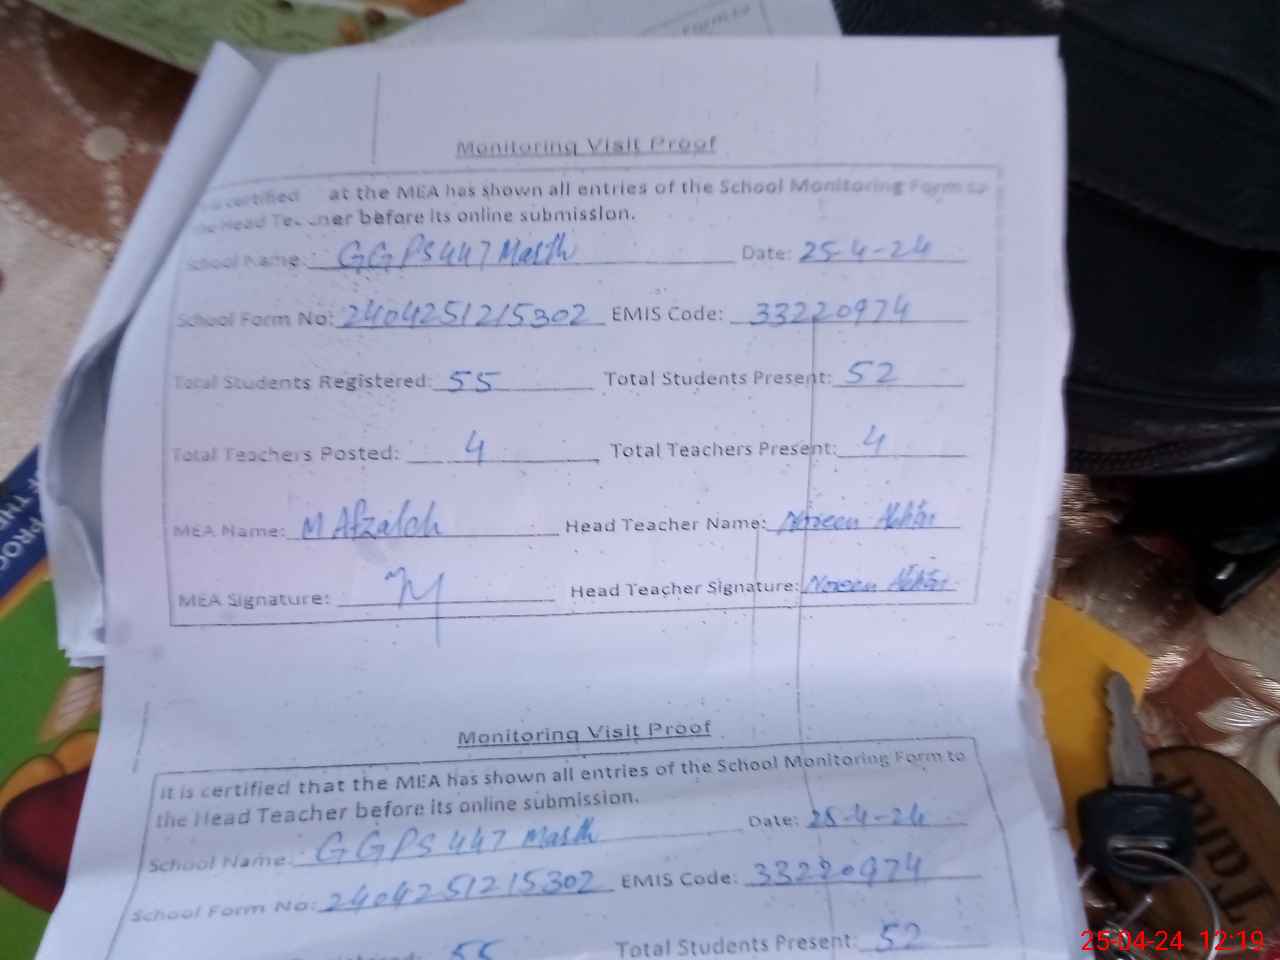 Form to
Monitoring Visit Proof
certified at the MEA has shown all entries of the School Monitoring Form to
the Head Teacher before its online submission.
School Name: GGPS 447 Date: 25-4-24
School Form No: 2404251215302 EMIS Code: 33220974
Total Students Registered: 55 Total Students Present: 52
Total Teachers Posted: 4 Total Teachers Present: 4
MEA Name: M Afzal Head Teacher Name: Noreen Akhtar
MEA Signature: M Head Teacher Signature: Noreen Akhtar
Monitoring Visit Proof
It is certified that the MEA has shown all entries of the School Monitoring Form to
the Head Teacher before its online submission.
School Name: GGPS 447 Date: 25-4-24
School Form No: 2404251215302 EMIS Code: 33220974
55 Total Students Present: 52
25-04-24 12:19